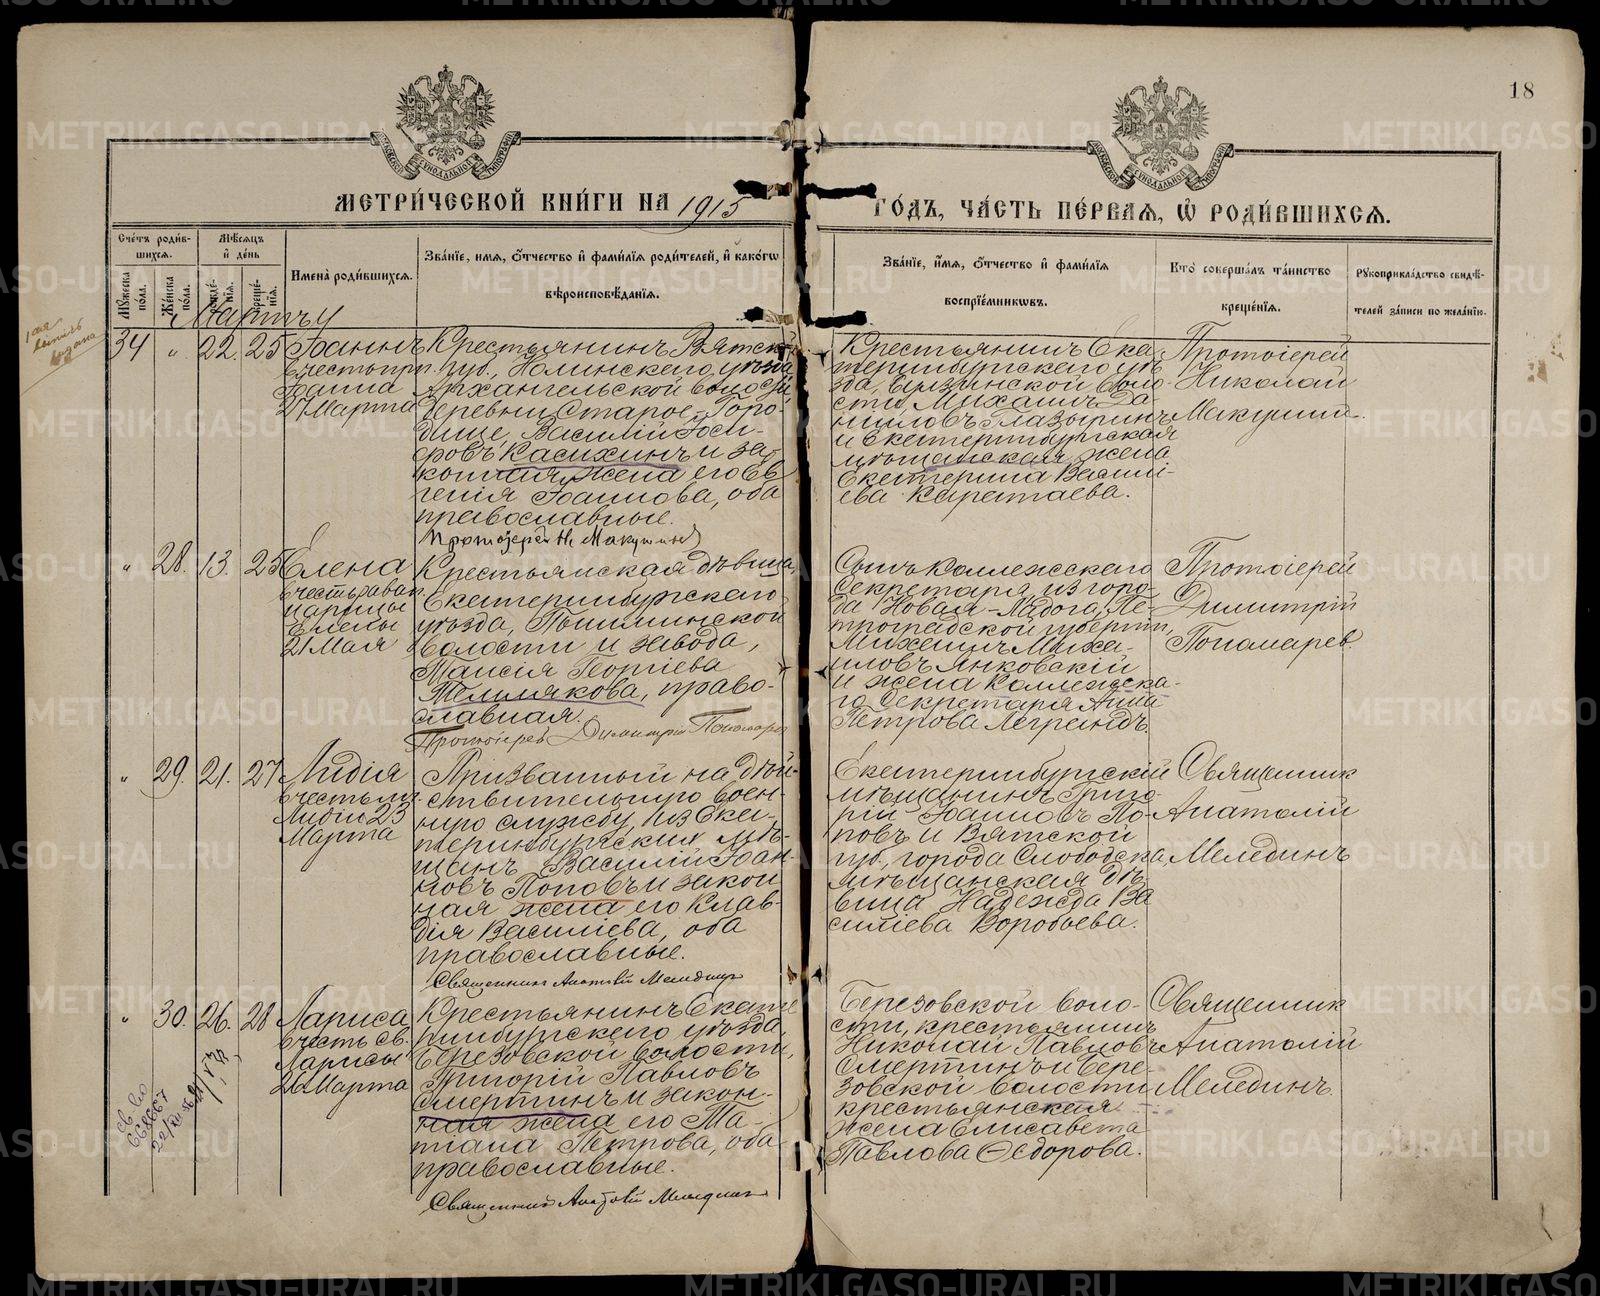 18
МЕТРИ́ЧЕСКОЙ КНИ́ГИ НА 1915
ГО́ДЪ, ЧА́СТЬ ПЕ́РВАѦ, Ѡ҆ РОДИ́ВШИХСѦ.
Сче́тъ роди́вшихсѧ.
Мꙋ́жеска по́ла.
Же́нска по́ла.
Мѣ́сѧцъ и҆ де́нь
рожде́нїѧ.
креще́нїѧ.
Имена̀ роди́вшихсѧ.
Зва́нїе, и҆́мѧ, ѻ҆́тчество и҆ фами́лїѧ роди́телей, и҆ како́гѡ
вѣроисповѣ́данїѧ.
Зва́нїе, и҆́мѧ, ѻ҆́тчество и҆ фами́лїѧ
воспрїе́мникѡвъ.
Кто̀ соверша́лъ та́инство
креще́нїѧ.
Рꙋкоприкла́дство свидѣ́-
телей за́писи по жела́нїю.
Мартъ
34 " 22. 25
Іоаннъ
въ честь прп.
Іоанна
Крестьянинъ Вятской
губ., Нолинскаго уѣзда
Архангельской волости,
деревни Старое-Горо-
дище, Василій Іоси-
фовъ Касихинъ и за
конная жена его Ев
генія Іоаннова, оба
православные.
Протоіерей Н. Макушинъ
Крестьянинъ Ека
теринбургскаго уѣ
зда, воло-
сти, Михаилъ Да
ниловъ Глазыринъ
и Екатеринбургская
мѣщанская жена
Екатерина Василі-
ева
Протоіерей
Николай
Макушинъ.
" 28. 13. 25
Елена
въ честь равн.
царицы
Елены
21 Мая
Крестьянская дѣвица,
Екатеринбургскаго
уѣзда, Пышминской
волости и завода,
Таисія Георгіева
православная.
Протоіерей Димитрій Пономаревъ
Сынъ Коллежскаго
Секретаря, изъ горо-
да Новая-Ладога, Пе-
троградской губерніи,
Михаилъ Миха-
иловъ Янковскій
и жена Коллежска-
го Секретаря Анна
Петрова
Протоіерей
Димитрій
Пономаревъ.
" 29. 21. 27
Лидія
въ честь мц.
Лидіи 23
Марта
Призванный на дѣй-
ствительную воен-
ную службу, изъ Ека-
теринбургскихъ мѣ-
щанъ Василій Іоан-
новъ Поповъ и закон
ная жена его Клав-
дія Василіева, оба
православные.
Священникъ Анатолій Меледин
Екатеринбургскій
мѣщанинъ Григо-
рій Іоанновъ По-
повъ и Вятской
губ., города Слободска,
мѣщанская дѣ-
вица Надежда Ва
силіева Воробьева.
Священник
Анатолій
Мелединъ
" 30. 26. 28
Лариса
въ честь св.
Ларисы
26 Марта
Крестьянинъ Екате
ринбургскаго уѣзда,
Березовской волости,
Григорій Павловъ
Смертинъ и закон-
ная жена его Та-
тіана Петрова, оба
православные.
Священникъ Анатолій Мелединъ
Березовской воло-
сти, крестьянинъ
Николай Павловъ
Смертинъ и Бере-
зовской волости
крестьянская
жена Елисавета
Павлова Ѳедорова.
Священник
Анатолій
Мелединъ.
METRIKI.GASO-URAL.RU